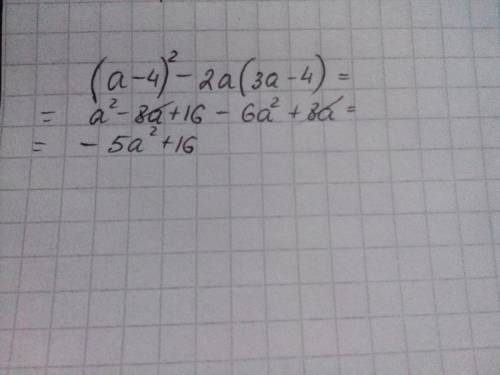 (a-4)² - 2a(3a-4) =
= a² - 8a + 16 - 6a² + 8a =
= - 5a² + 16